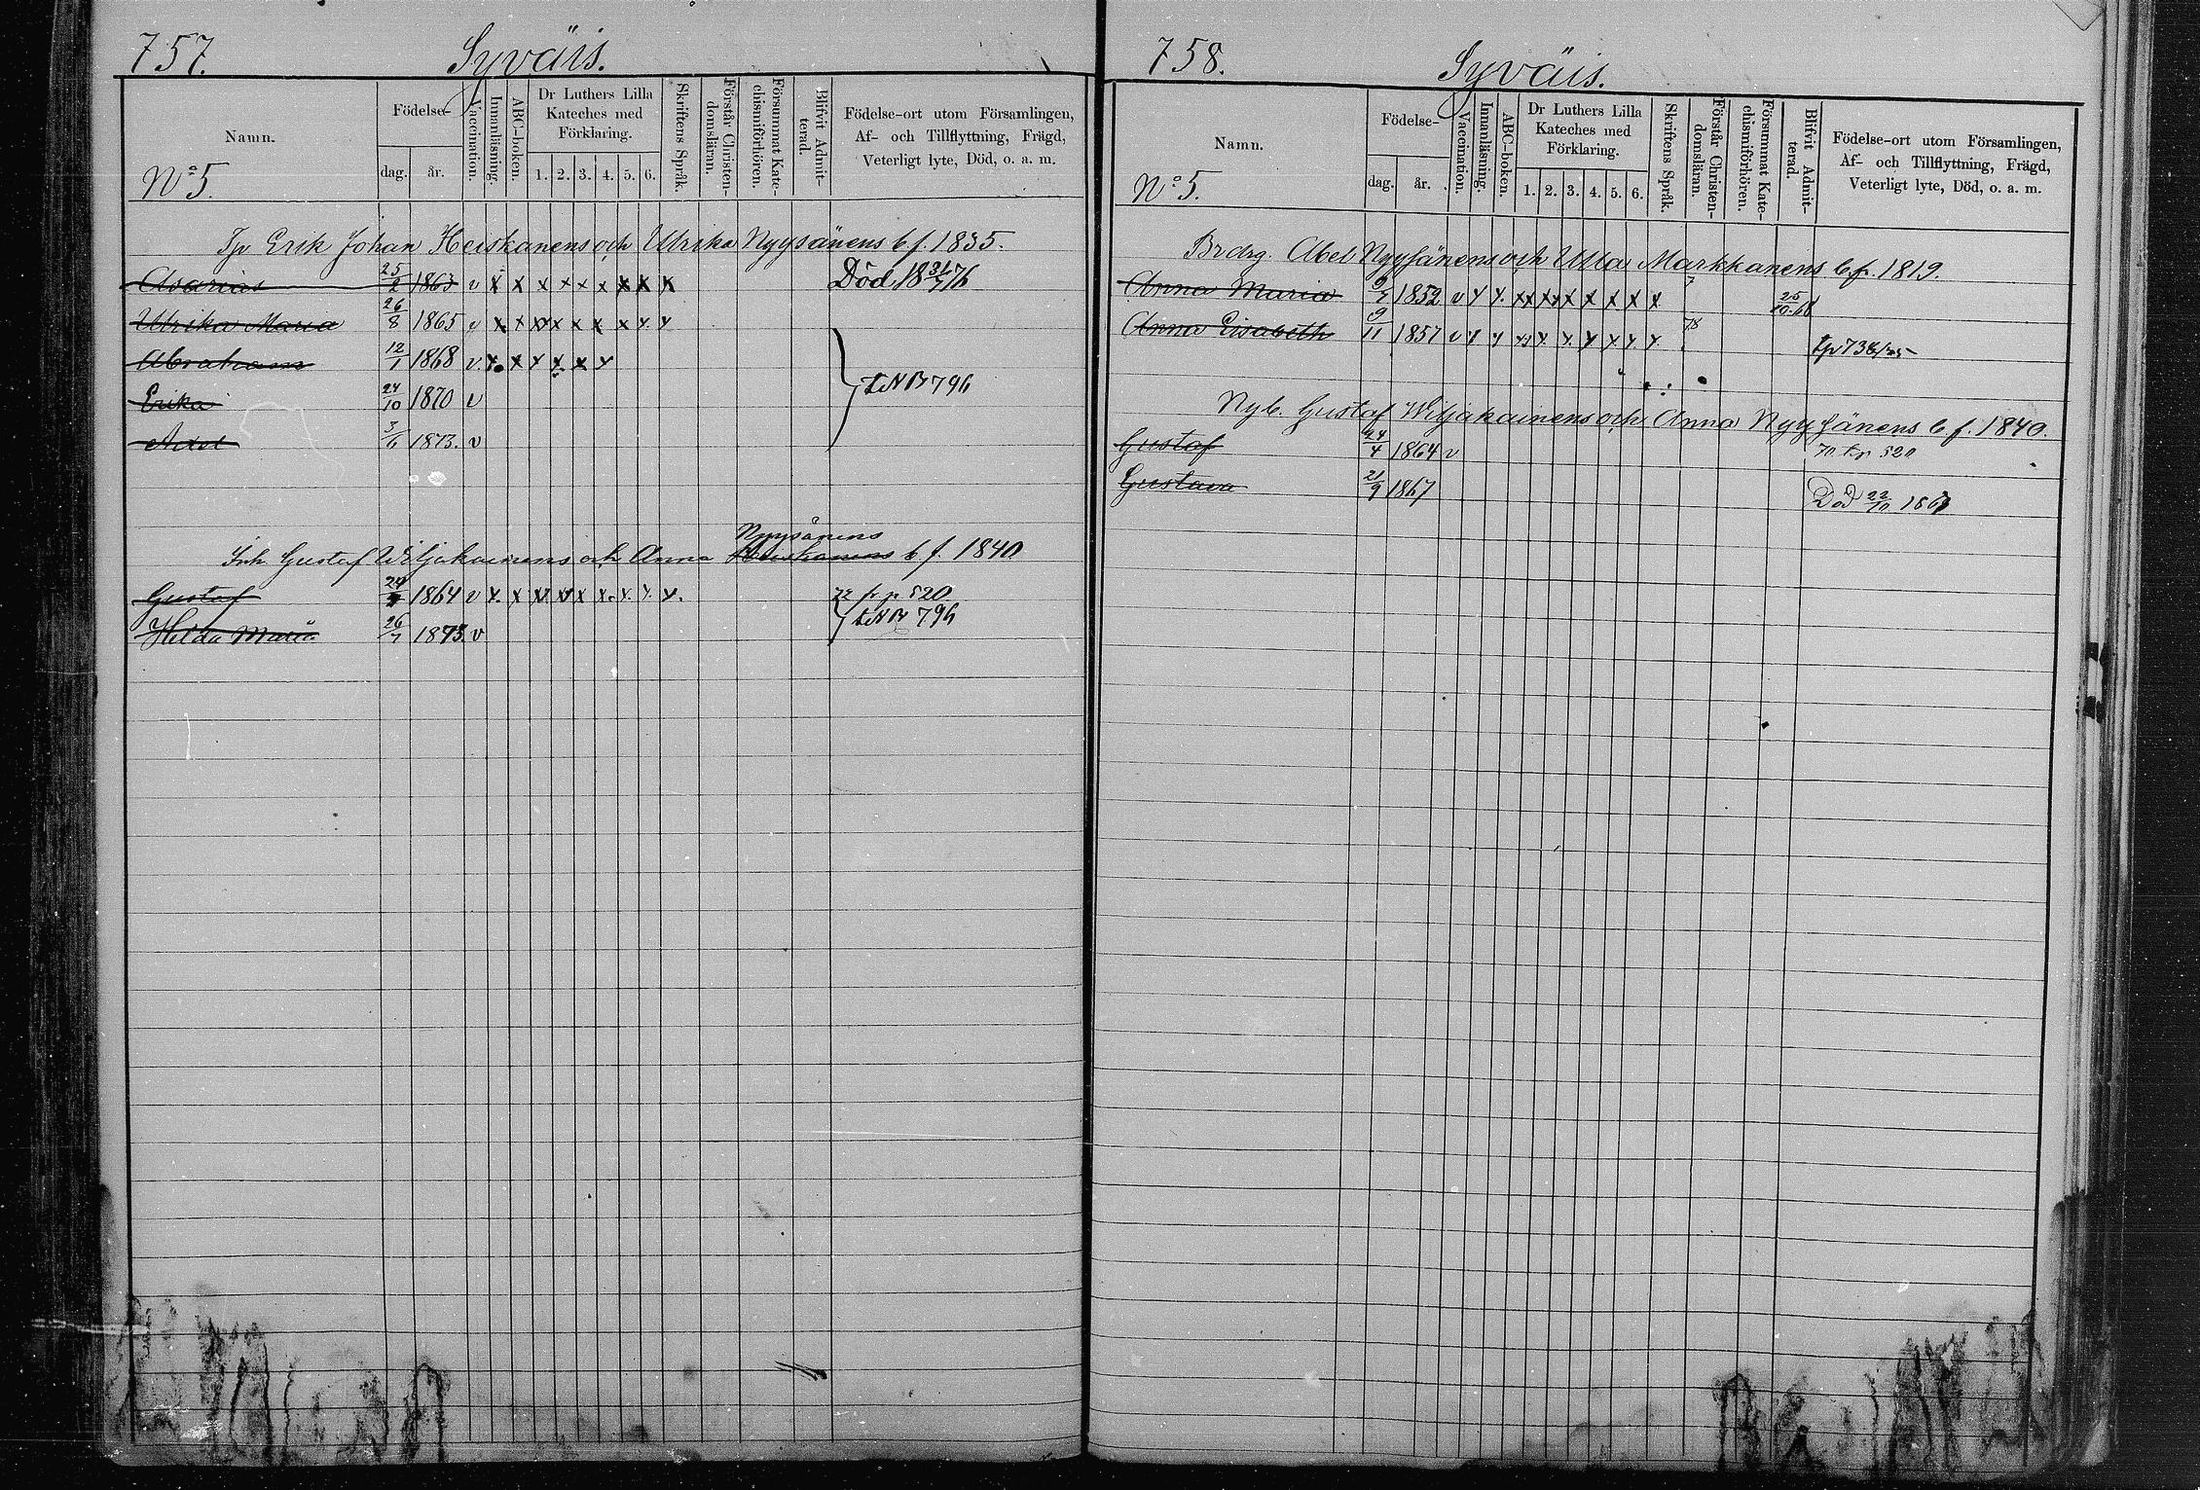 757.
Syväis.
Namn.
Födelse-
dag.
år.
Vaccination.
Innanläsning.
ABC-boken.
Dr Luthers Lilla
Kateches med
Förklaring.
1. 2. 3. 4. 5. 6.
Skriftens Språk.
Förstår Christen-
domsläran.
Försummat Kate-
chismiförhören.
Blifvit Admit-
terad.
Födelse-ort utom Församlingen,
Af- och Tillflyttning, Frägd,
Veterligt lyte, Död, o. a. m.
No 5.
Erik Johan Heiskanens och Ulrika Nyysänens b f. 1835.
Asarias 25/2 1863 v x x x x x x x x x Död 18 31/7 76
Ulrika Maria 26/8 1865 v x x x x x x x x x
Abraham 12/1 1868 v x x x x x x
Erika 24/10 1870 v 796
Axel 1873. v
Nyysänens
Gustaf Wiljakainens och Anna Heiskanens b f. 1840
Gustaf 1864 v x x x x x x x x x 520
Hilda Maria 26/7 1873 v 796
758.
Syväis.
Namn.
Födelse-
dag.
år.
Vaccination.
Innanläsning.
ABC-boken.
Dr Luthers Lilla
Kateches med
Förklaring.
1. 2. 3. 4. 5. 6.
Skriftens Språk.
Förstår Christen-
domsläran.
Försummat Kate-
chismiförhören.
Blifvit Admit-
terad.
Födelse-ort utom Församlingen,
Af- och Tillflyttning, Frägd,
Veterligt lyte, Död, o. a. m.
No 5.
Abel Nyysänens och Ulla Markkanens b f. 1819.
Anna Maria 1852 v x x x x x x x x x
Anna Lisabeth 9/11 1857 v x x x x x x x x x
Nyb. Gustaf Wiljakainens och Anna Nyysänens b f. 1840.
Gustaf 24/4 1864 v 520
Gustava 21/9 1867 Död 22/10 1867